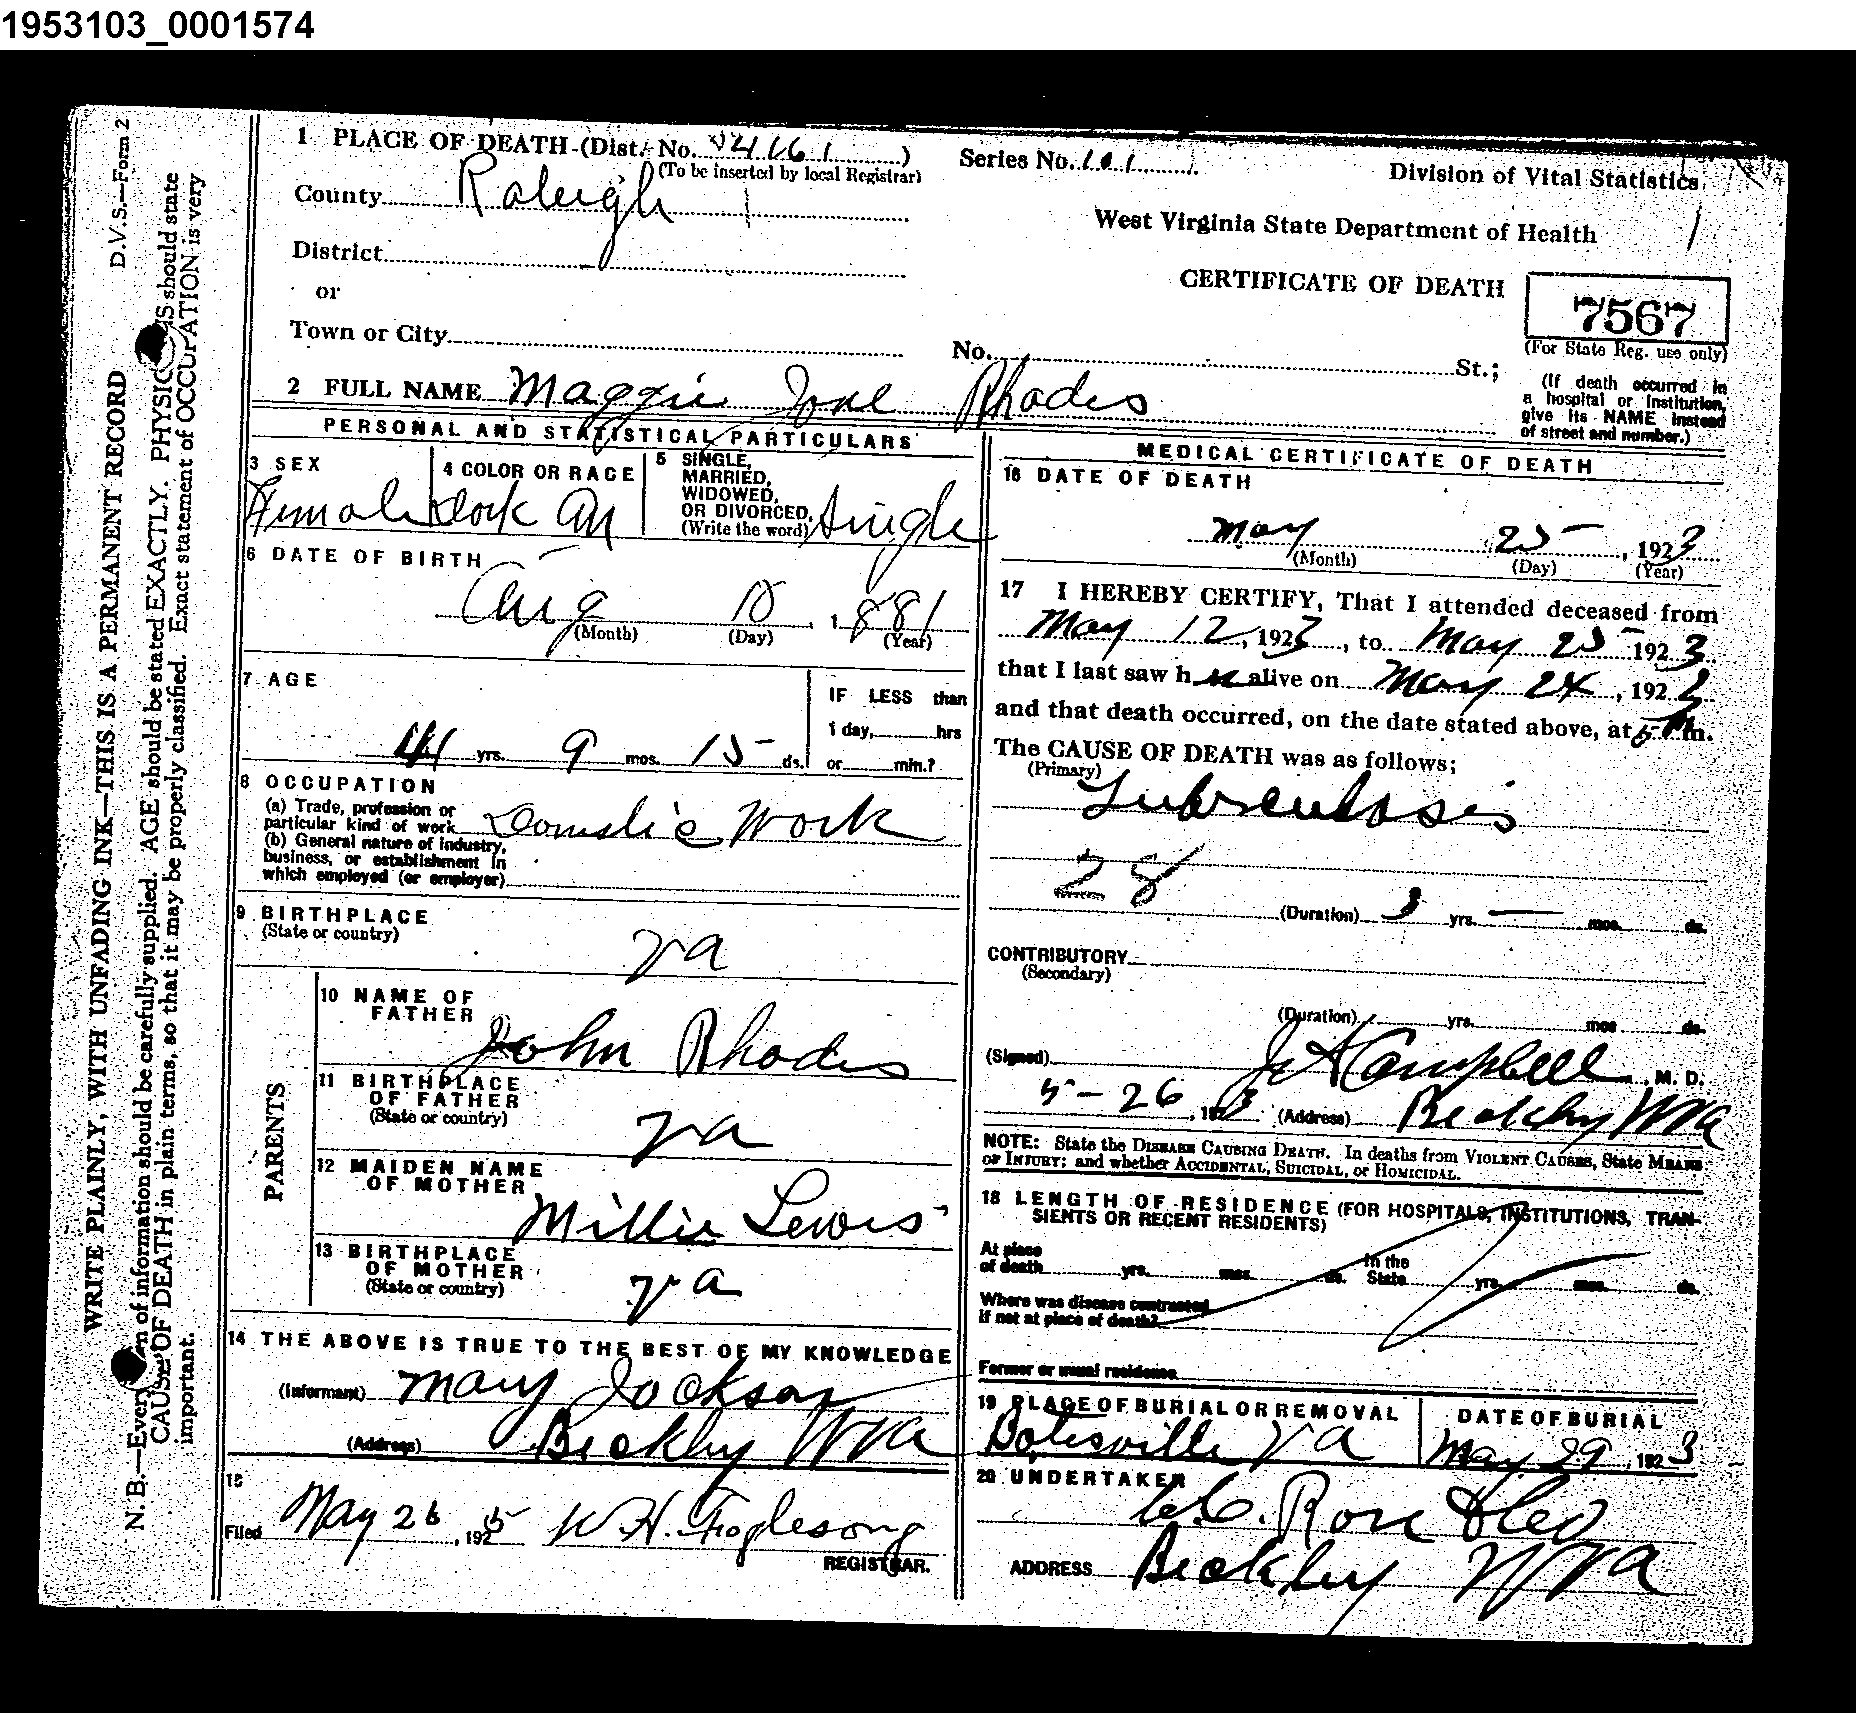 1953103_0001574
D.V.S.—Form 2
WRITE PLAINLY, WITH UNFADING INK—THIS IS A PERMANENT RECORD
N. B.—Every item of information should be carefully supplied. AGE should be stated EXACTLY. PHYSICIANS should state
CAUSE OF DEATH in plain terms, so that it may be properly classified. Exact statement of OCCUPATION is very
important.
1 PLACE OF DEATH (Dist. No. 4161)
(To be inserted by local Registrar)
Series No. 101
Division of Vital Statistics
County Raleigh
West Virginia State Department of Health
District
or
CERTIFICATE OF DEATH
7567
(For State Reg. use only)
Town or City
No. St.;
(If death occurred in
a hospital or Institution,
give its NAME instead
of street and number.)
2 FULL NAME Maggie Jane Rhodes
PERSONAL AND STATISTICAL PARTICULARS
3 SEX
Female
4 COLOR OR RACE
Dark
5 SINGLE,
MARRIED,
WIDOWED,
OR DIVORCED,
(Write the word) Single
6 DATE OF BIRTH
Aug 10 1881
(Month) (Day) (Year)
7 AGE
41 yrs. 9 mos. 15 ds.
IF LESS than
1 day, hrs
or min.?
8 OCCUPATION
(a) Trade, profession or
particular kind of work Domestic Work
(b) General nature of industry,
business, or establishment in
which employed (or employer)
9 BIRTHPLACE
(State or country)
Va
PARENTS
10 NAME OF
FATHER
John Rhodes
11 BIRTHPLACE
OF FATHER
(State or country)
Va
12 MAIDEN NAME
OF MOTHER
Millie Lewis
13 BIRTHPLACE
OF MOTHER
(State or country)
Va
14 THE ABOVE IS TRUE TO THE BEST OF MY KNOWLEDGE
(Informant) Mary Jackson
(Address) Beckley WVa
15
Filed May 26, 1925 W. H. Foglesong
REGISTRAR.
MEDICAL CERTIFICATE OF DEATH
16 DATE OF DEATH
May 25, 1923
(Month) (Day) (Year)
17 I HEREBY CERTIFY, That I attended deceased from
May 12, 1923, to May 25 1923
that I last saw her alive on May 24, 1923
and that death occurred, on the date stated above, at 5 m.
The CAUSE OF DEATH was as follows;
(Primary)
Tuberculosis
28
(Duration) 3 yrs. — mos. ds.
CONTRIBUTORY
(Secondary)
(Duration) yrs. mos ds.
(Signed) Campbell, M. D.
5-26, 1923 (Address) Beckley WVa
NOTE: State the DISEASE CAUSING DEATH. In deaths from VIOLENT CAUSES, State MEANS
OF INJURY; and whether ACCIDENTAL, SUICIDAL, or HOMICIDAL.
18 LENGTH OF RESIDENCE (FOR HOSPITALS, INSTITUTIONS, TRAN-
SIENTS OR RECENT RESIDENTS)
At place
of death yrs. mos. ds.
In the
State yrs. mos. ds.
Where was disease contracted
If not at place of death?
Former or usual residence
19 PLACE OF BURIAL OR REMOVAL
Va
DATE OF BURIAL
May 29, 1923
20 UNDERTAKER
ADDRESS Beckley WVa